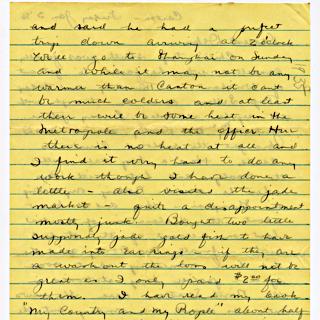 and said he had a perfect
trip down arriving at 2 o'clock
We do go to Shanghai on Sunday
and while it may not be any
warmer than Canton it cant
be much colder and at least
there will be some heat in the
Metropole and the office. Here
there is no heat at all and
I find it very hard to do any
work though I have done a
little - Also visited the jade
market - quite a disappointment
mostly junk. Bought two little
supposedly jade gold fish to have
made into ear rings - if they are
a washout the loss will not be
great as I only paid $2.00 for
them. I have read my book
"My Country and my People" about half